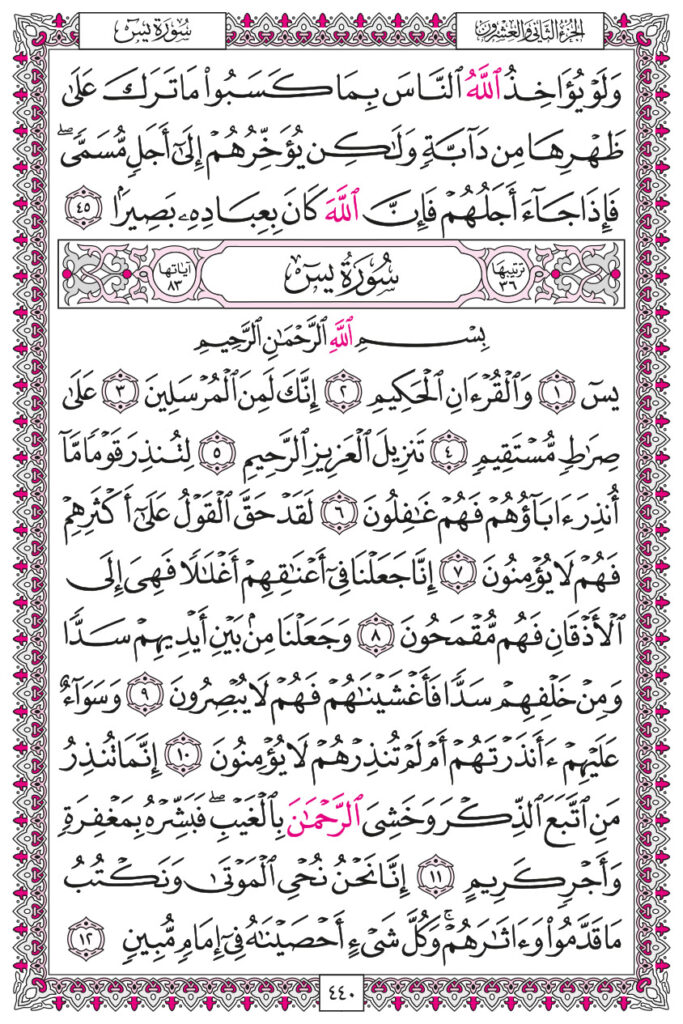 الجزء الثاني والعشرون
سُورَةُ يسٓ
وَلَوۡ يُؤَاخِذُ ٱللَّهُ ٱلنَّاسَ بِمَا كَسَبُواْ مَا تَرَكَ عَلَىٰ
ظَهۡرِهَا مِن دَآبَّةٖ وَلَٰكِن يُؤَخِّرُهُمۡ إِلَىٰٓ أَجَلٖ مُّسَمّٗىۖ
فَإِذَا جَآءَ أَجَلُهُمۡ فَإِنَّ ٱللَّهَ كَانَ بِعِبَادِهِۦ بَصِيرَۢا ٤٥
ترتيبها ٣٦
سُورَةُ يسٓ
آياتها ٨٣
بِسۡمِ ٱللَّهِ ٱلرَّحۡمَٰنِ ٱلرَّحِيمِ
يسٓ ١ وَٱلۡقُرۡءَانِ ٱلۡحَكِيمِ ٢ إِنَّكَ لَمِنَ ٱلۡمُرۡسَلِينَ ٣ عَلَىٰ
صِرَٰطٖ مُّسۡتَقِيمٖ ٤ تَنزِيلَ ٱلۡعَزِيزِ ٱلرَّحِيمِ ٥ لِتُنذِرَ قَوۡمٗا مَّآ
أُنذِرَ ءَابَآؤُهُمۡ فَهُمۡ غَٰفِلُونَ ٦ لَقَدۡ حَقَّ ٱلۡقَوۡلُ عَلَىٰٓ أَكۡثَرِهِمۡ
فَهُمۡ لَا يُؤۡمِنُونَ ٧ إِنَّا جَعَلۡنَا فِيٓ أَعۡنَٰقِهِمۡ أَغۡلَٰلٗا فَهِيَ إِلَى
ٱلۡأَذۡقَانِ فَهُم مُّقۡمَحُونَ ٨ وَجَعَلۡنَا مِنۢ بَيۡنِ أَيۡدِيهِمۡ سَدّٗا
وَمِنۡ خَلۡفِهِمۡ سَدّٗا فَأَغۡشَيۡنَٰهُمۡ فَهُمۡ لَا يُبۡصِرُونَ ٩ وَسَوَآءٌ
عَلَيۡهِمۡ ءَأَنذَرۡتَهُمۡ أَمۡ لَمۡ تُنذِرۡهُمۡ لَا يُؤۡمِنُونَ ١٠ إِنَّمَا تُنذِرُ
مَنِ ٱتَّبَعَ ٱلذِّكۡرَ وَخَشِيَ ٱلرَّحۡمَٰنَ بِٱلۡغَيۡبِۖ فَبَشِّرۡهُ بِمَغۡفِرَةٖ
وَأَجۡرٖ كَرِيمٍ ١١ إِنَّا نَحۡنُ نُحۡيِ ٱلۡمَوۡتَىٰ وَنَكۡتُبُ
مَا قَدَّمُواْ وَءَاثَٰرَهُمۡۚ وَكُلَّ شَيۡءٍ أَحۡصَيۡنَٰهُ فِيٓ إِمَامٖ مُّبِينٖ ١٢
٤٤٠